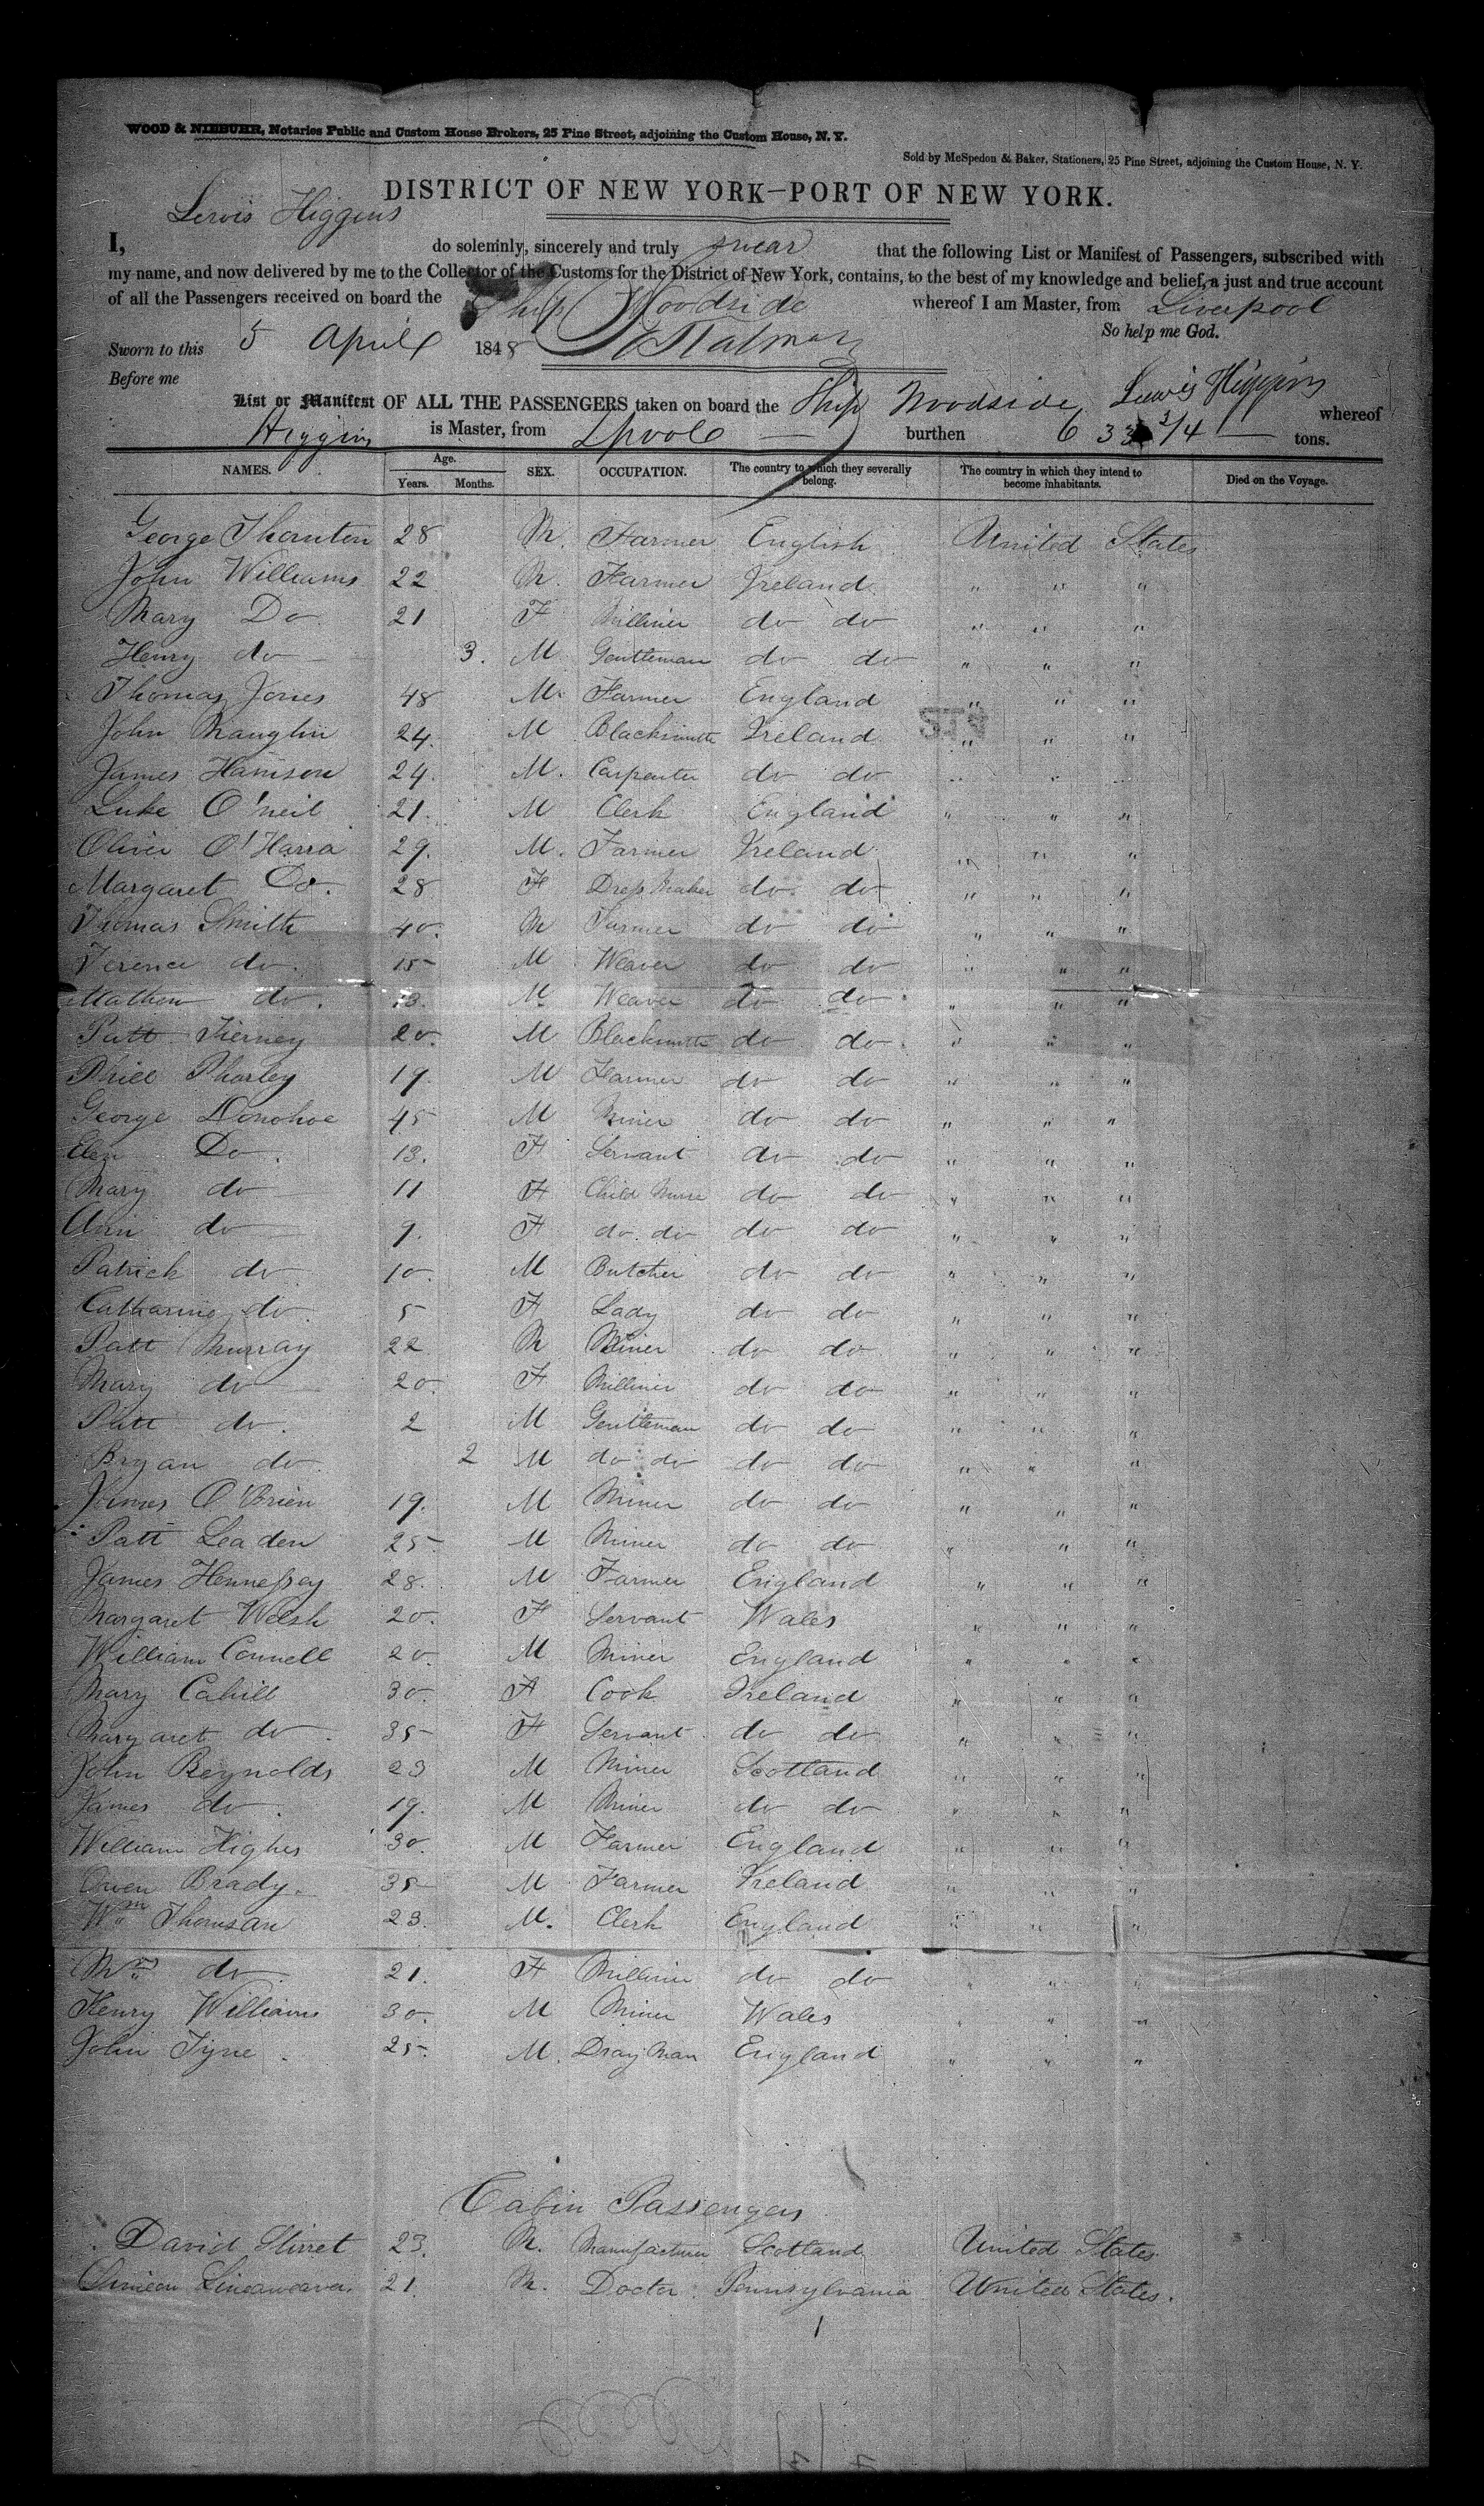 WOOD & NIEBUHR, Notaries Public and Custom House Brokers, 25 Pine Street, adjoining the Custom House, N. Y.
Sold by McSpedon & Baker, Stationers, 25 Pine Street, adjoining the Custom House, N. Y.
DISTRICT OF NEW YORK—PORT OF NEW YORK.
I, Lewis Higgins do solemnly, sincerely and truly swear that the following List or Manifest of Passengers, subscribed with
my name, and now delivered by me to the Collector of the Customs for the District of New York, contains, to the best of my knowledge and belief, a just and true account
of all the Passengers received on board the Ship Woodside whereof I am Master, from Liverpool
So help me God.
Sworn to this 5 April 1848
Before me Lewis Higgins
List or Manifest OF ALL THE PASSENGERS taken on board the Ship Woodside whereof
Higgins is Master, from Lpool — burthen 633 3/4 — tons.
NAMES. Age. Years. Months. SEX. OCCUPATION. The country to which they severally belong. The country in which they intend to become inhabitants. Died on the Voyage.
George Thornton 28 M. Farmer English United States
John Williams 22 M. Farmer Ireland " " "
Mary Do 21 F Milliner do do " " "
Henry do 3. M Gentleman do do " " "
Thomas Jones 48 M. Farmer England " " "
John Maughin 24. M Blacksmith Ireland " " "
James Harrison 24. M. Carpenter do do " " "
Luke O'neil 21. M Clerk England " " "
Oliver O'Harra 29. M. Farmer Ireland " " "
Margaret Do. 28 F Dress Maker do do " " "
Thomas Smith 40. M Farmer do do " " "
Terence do. 15 M Weaver do do " " "
Mathew do. 13. M Weaver do do " " "
Patt Tierney 20. M Blacksmith do do " " "
Phill Pharley 19. M Farmer do do " " "
George Donohoe 45 M Miner do do " " "
Elen Do. 13. F Servant do do " " "
Mary do 11 F Child Nurse do do " " "
Ann do 9. F do do do do " " "
Patrick do 10. M Butcher do do " " "
Catharine do. 5 F Lady do do " " "
Patt Murray 22 M Miner do do " " "
Mary do 20. F Milliner do do " " "
Patt do. 2 M Gentleman do do " " "
Bryan do 2 M do do do do " " "
James O'Brien 19. M Miner do do " " "
Patt Leaden 25 M Miner do do " " "
James Hennessey 28. M Farmer England " " "
Margaret Welsh 20. F Servant Wales " " "
William Connell 20. M Miner England " " "
Mary Cahill 30. F Cook Ireland " " "
Margaret do 35 F Servant do do " " "
John Reynolds 23 M Miner Scotland " " "
James do. 19. M Miner do do " " "
William Highes 30. M Farmer England " " "
Owen Brady. 35 M Farmer Ireland " " "
Wm Thomsan 23. M. Clerk England " " "
Mrs do 21. F Milliner do do " " "
Henry Williams 30. M Miner Wales " " "
John Tyne. 25. M. Dray Man England " " "
Cabin Passengers
David Stirret 23. M. Manufacturer Scotland United States
Simeon Lineaweaver 21 M. Doctor Pennsylvania United States.